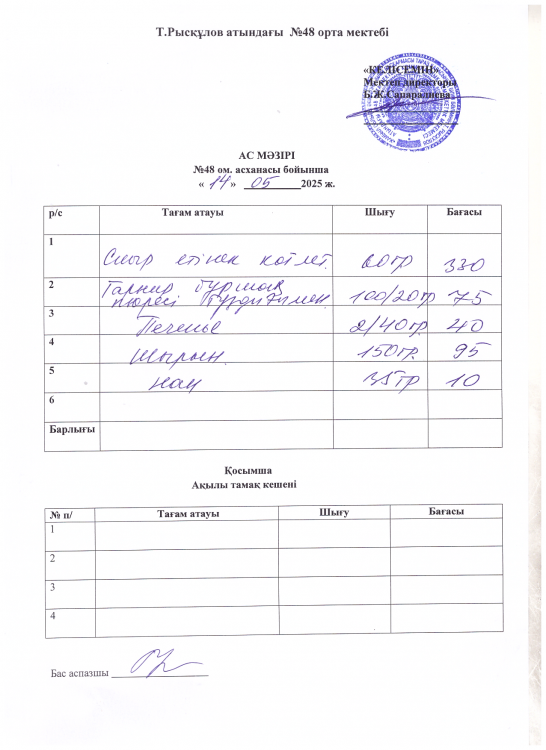 Т.Рысқұлов атындағы №48 орта мектебі
«КЕЛІСЕМІН»
Мектеп директоры
Б.Ж.Сапаралиева
АС МӘЗІРІ
№48 ом. асханасы бойынша
« 14 » 05 2025 ж.
р/с Тағам атауы Шығу Бағасы
1 Сиыр етінен котлет. 60гр 330
2 Гарнир бұршақ
пюресі 100/20гр 75
3 Печенье 2/40гр. 40
4 Шырын. 150гр. 95
5 нан 35гр 10
6
Барлығы
Қосымша
Ақылы тамақ кешені
№ п/ Тағам атауы Шығу Бағасы
1
2
3
4
Бас аспазшы